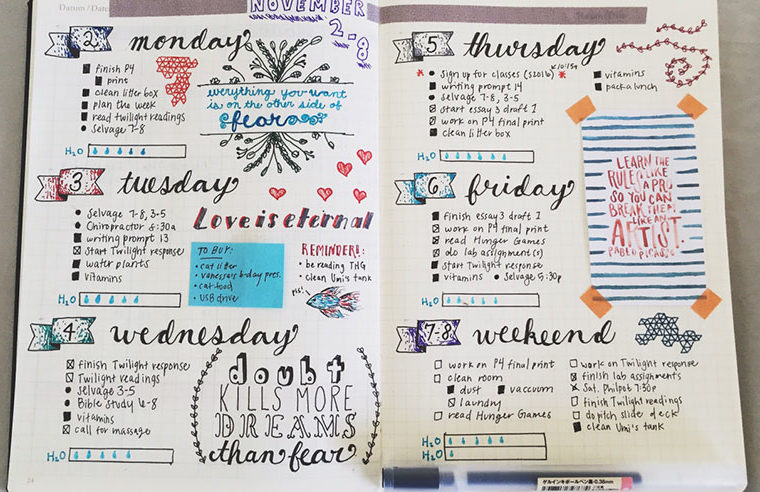 Datum / Date:
NOVEMBER
2-8
2 monday
finish P4
print
clean litter box
plan the week
read twilight readings
Selvage 7-8
H₂O
everything you want
is on the other side of
fear
3 tuesday
Selvage 7-8, 3-5
Chiropractor 8:30a
writing prompt 13
start Twilight response
water plants
vitamins
H₂O
Love is eternal
TO BUY:
cat litter
vanessa's b-day pres.
cat food
USB drive
REMINDER!:
be reading THG
clean Umi's tank
pls!
4 wednesday
finish Twilight response
Twilight readings
Selvage 3-5
Bible Study 6-8
vitamins
call for massage
H₂O
doubt
KILLS MORE
DREAMS
than fear
24
5 thursday
Sign up for classes (S2016)
writing prompt 14
Selvage 7-8, 3-5
start essay 3 draft 1
work on P4 final print
clean litter box
vitamins
pack a lunch
H₂O
6 friday
finish essay 3 draft 1
work on P4 final print
read Hunger Games
do lab assignment(s)
start Twilight response
vitamins • Selvage 5:30p
H₂O
LEARN THE
RULES LIKE
A PRO
SO YOU CAN
BREAK THEM
LIKE AN
ARTIST.
PABLO PICASSO
7-8 weekend
work on P4 final print
clean room
dust
vaccum
laundry
read Hunger Games
work on Twilight response
finish lab assignments
Sat. Philpot 7:30p
finish Twilight readings
do pitch slide deck
clean Umi's tank
H₂O
ゲルインキボールペン黒・0.38mm